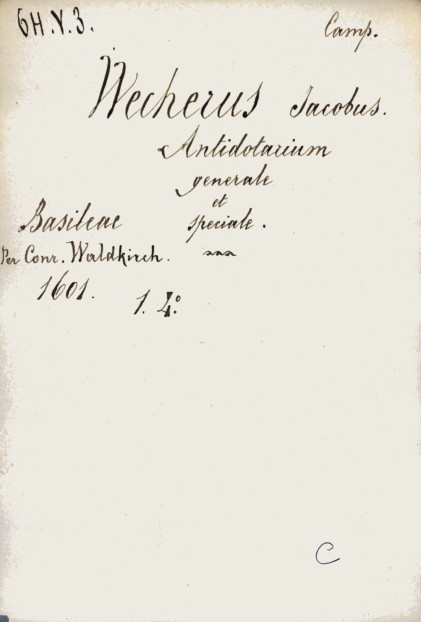 6H.V.3.
Camp.
Wecherus Jacobus.
Antidotarium
generale
et
speciale.
Basileae
Per Conr. Waldkirch.
1601.
1. 4º
C